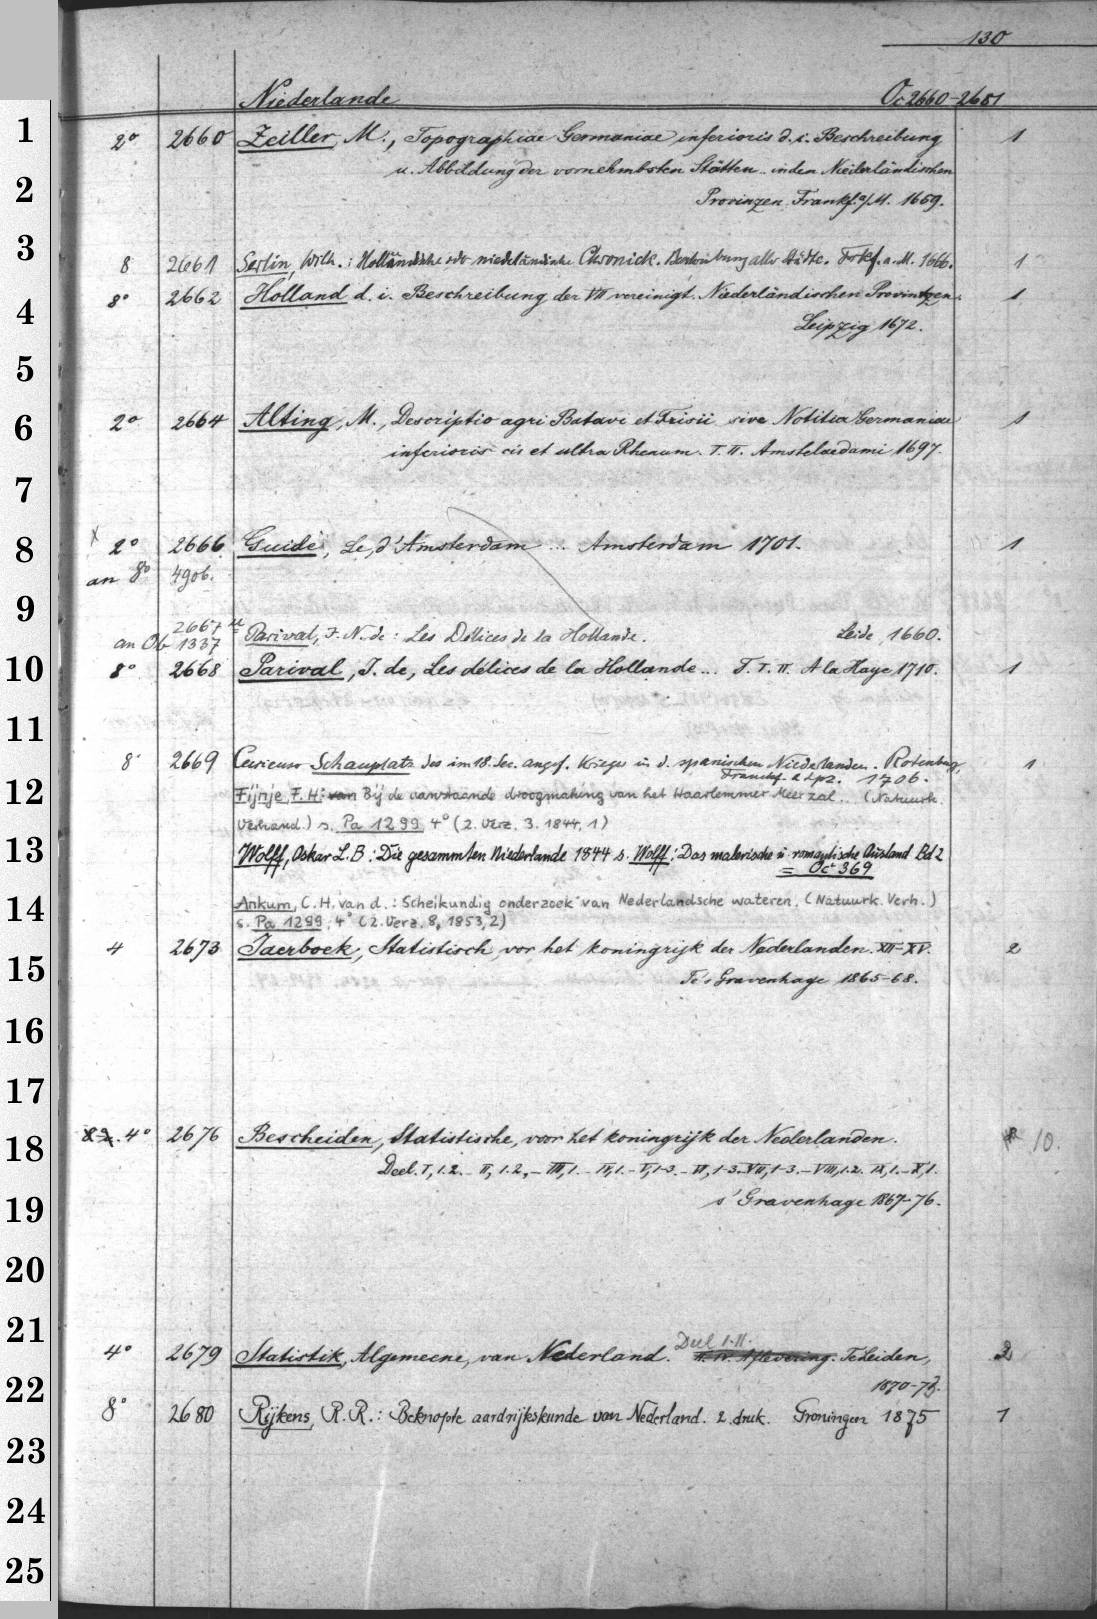 130
Niederlande Oc 2660-2681
1
2
3
4
5
6
7
8
9
10
11
12
13
14
15
16
17
18
19
20
21
22
23
24
25
2° 2660 Zeiller, M., Topographiae Germaniae inferioris d. i. Beschreibung 1
u. Abbildung der vornehmbsten Stätten .. in den Niederländischen
Provinzen. Frankf. a/M. 1659.
8 2661 Serlin, Wilh.: Holländische oder niederländische Chronick. Beschreibung aller Städte. Frkf. a. M. 1666. 1
8° 2662 Holland d. i. Beschreibung der VII vereinigt. Niederländischen Provintzen. 1
Leipzig 1672.
2° 2664 Alting, M., Descriptio agri Batavi et Frisii sive Notitia Germaniae 1
inferioris cis et ultra Rhenum. T. II. Amstelaedami 1697.
x 2° 2666 Guide, Le, d'Amsterdam ... Amsterdam 1701. 1
an 8° 4906.
2667
an Ob 1337 Parival, J. N. de: Les Délices de la Hollande. Leide, 1660.
8° 2668 Parival, J. de, Les délices de la Hollande... T. I. II. A la Haye 1710. 1
8° 2669 Curieuser Schauplatz des im 18. Sec. angef. Krieges in d. spanischen Niederlanden. Rotenburg, 1
Franckf. & Lpz. 1706.
Fijnje, F. H.: van Bij de aanstaande droogmaking van het Haarlemmer Meer zal.. (Natuurk.
Verhand.) s. Pa 1299 4° (2. Verz. 3. 1844, 1)
Wolff, Oskar L. B.: Die gesammten Niederlande 1844 s. Wolff: Das malerische u. romantische Ausland Bd 2
= Oc 369
Ankum, C. H. van d.: Scheikundig onderzoek van Nederlandsche wateren. (Natuurk. Verh.)
s. Pa 1299. 4° (2. Verz. 8, 1853, 2)
4 2673 Jaerboek, Statistisch voor het koningrijk der Nederlanden. XII-XV. 2
Te's Gravenhage 1865-68.
4° 2676 Bescheiden, Statistische, voor het koningrijk der Nederlanden. 10.
Deel. I, 1.2. - II, 1.2, - III, 1. - IV, 1. - V, 1-3. - VI, 1-3. VII, 1-3. - VIII, 1.2. IX, 1. - X, 1.
s'Gravenhage 1867-76.
Deel I-II.
4° 2679 Statistik, Algemeene, van Nederland. Aflevering. Te Leiden, 2
1870-73.
8° 2680 Rijkens, R. R.: Beknopte aardrijkskunde van Nederland. 2. druk. Groningen 1875 1